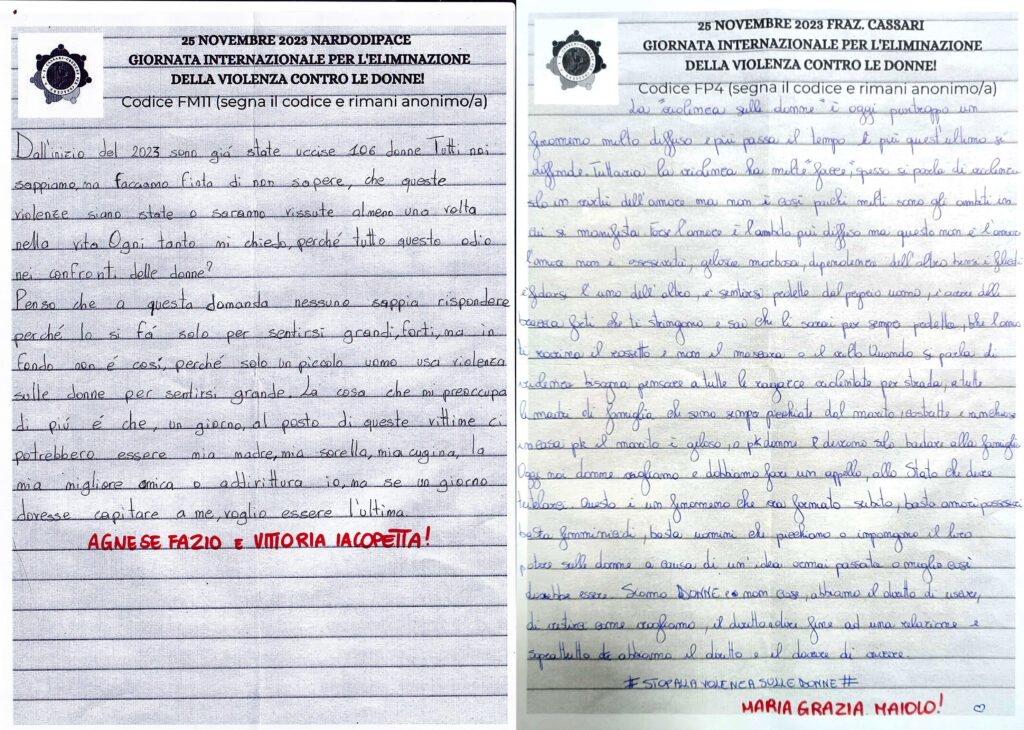 25 NOVEMBRE 2023 NARDODIPACE
GIORNATA INTERNAZIONALE PER L'ELIMINAZIONE
DELLA VIOLENZA CONTRO LE DONNE!
Codice FM11 (segna il codice e rimani anonimo/a)
Dall'inizio del 2023 sono giá state uccise 106 donne Tutti noi
sappiamo, ma facciamo finta di non sapere, che queste
violenze siano state o saranno vissute almeno una volta
nella vita Ogni tanto mi chiedo, perché tutto questo odio
nei confronti delle donne?
Penso che a questa domanda nessuno sappia rispondere
perché lo si fá solo per sentirsi grandi, forti, ma in
fondo non é cosí, perché solo un piccolo uomo usa violenza
sulle donne per sentirsi grande. La cosa che mi preoccupa
di piú é che, un giorno, al posto di queste vittime ci
potrebbero essere mia madre, mia sorella, mia cugina, la
mia migliore amica o addirittura io, ma se un giorno
dovesse capitare a me, voglio essere l'ultima.
AGNESE FAZIO E VITTORIA IACOPETTA!
25 NOVEMBRE 2023 FRAZ. CASSARI
GIORNATA INTERNAZIONALE PER L'ELIMINAZIONE
DELLA VIOLENZA CONTRO LE DONNE!
Codice FP4 (segna il codice e rimani anonimo/a)
La "violenza sulle donne" è oggi purtroppo un
fenomeno molto diffuso e più passa il tempo e più quest'ultimo si
diffonde. Tuttavia la violenza ha molte "facce", spesso si parla di violenza
solo in ambito dell'amore ma non è così molti sono gli ambiti in
cui si manifesta Forse l'amore è l'ambito più diffuso ma questo non è l'amore
l'amore non è gelosia morbosa, dipendenza dell'altro bensì è
fidarsi l'uno dell'altro, è sentirsi protetta dal proprio uomo, è avere delle
braccia forti che ti stringono e sai che lì sarai per sempre protetta,
ti rovina il rossetto e non il mascara o il Quando si parla di
violenza bisogna pensare a tutte le ragazze violentate per strada, a tutte
le madri di famiglia che sono sempre picchiate dal marito costrette e
in casa pk il marito è geloso, o pk donne devono solo badare alla famiglia
Oggi noi donne vogliamo e dobbiamo fare un appello, allo Stato che deve
tutelarci Questo è un fenomeno che va fermato subito, basta amori possessivi
basta femminicidi, basta uomini che picchiano o impongono il loro
potere sulle donne a causa di un'idea ormai passata o meglio così
dovrebbe essere. Siamo DONNE e non cose, abbiamo il diritto di uscire,
di vestirci come vogliamo, il diritto a dire fine ad una relazione e
soprattutto abbiamo il diritto e il dovere di vivere.
#STOP ALLA VIOLENZA SULLE DONNE#
MARIA GRAZIA MAIOLO!